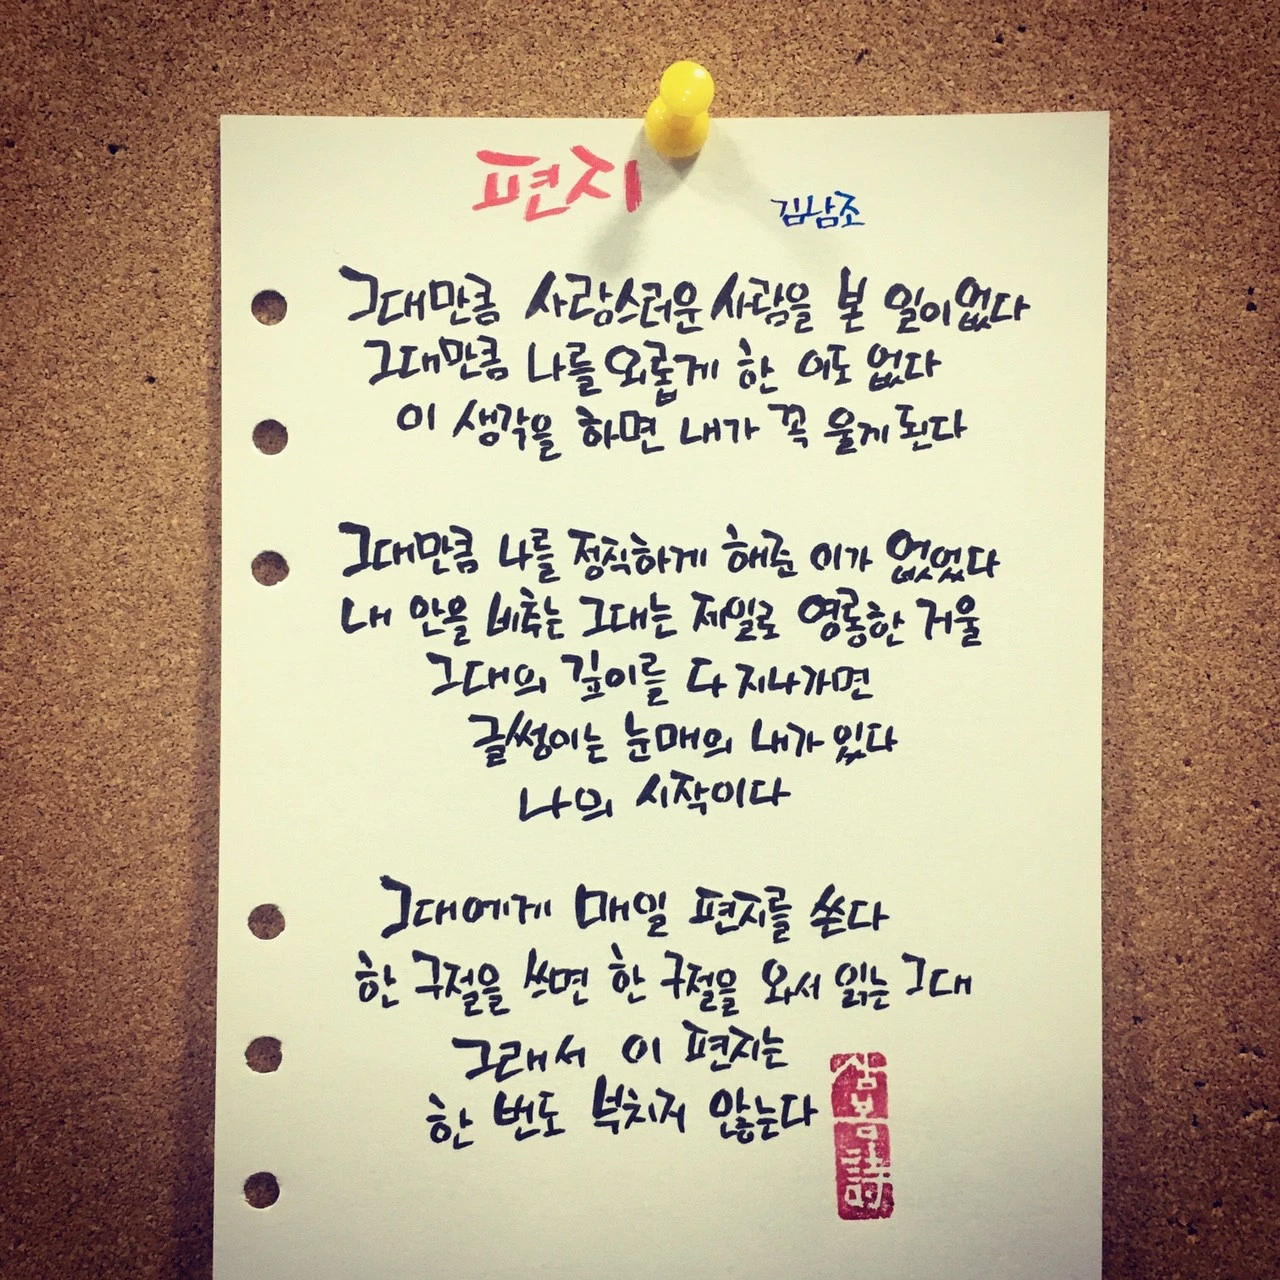 편지
김남조
그대만큼 사랑스러운 사람을 본 일이 없다
그대만큼 나를 외롭게 한 이도 없다
이 생각을 하면 내가 꼭 울게 된다
그대만큼 나를 정직하게 해준 이가 없었다
내 안을 비추는 그대는 제일로 영롱한 거울
그대의 깊이를 다 지나가면
글썽이는 눈매의 내가 있다
나의 시작이다
그대에게 매일 편지를 쓴다
한 구절을 쓰면 한 구절을 와서 읽는 그대
그래서 이 편지는
한 번도 부치지 않는다
삼봄詩